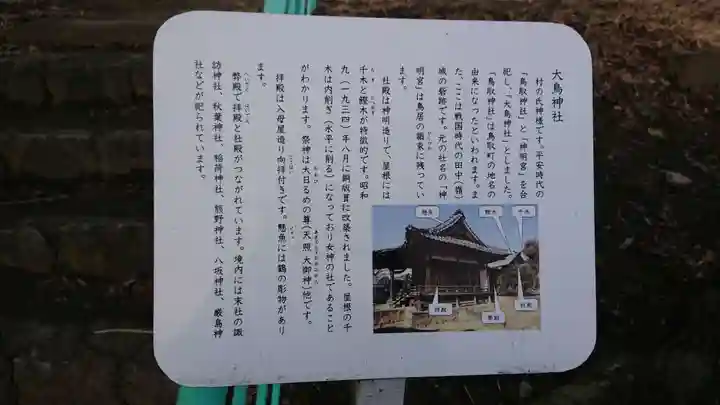 大鳥神社
村の氏神様です。平安時代の
「鳥取神社」と「神明宮」を合
祀し、「大鳥神社」としました。
「鳥取神社」は鳥取町の地名の
由来になったといわれます。ま
た、ここは戦国時代の田中(嶺)
城の砦跡です。元の社名の「神
明宮」は鳥居の額束に残ってい
ます。
社殿は神明造りで、屋根には
千木と鰹木が特徴的です。昭和
九(一九三四)年八月に銅版葺に改築されました。屋根の千
木は内削ぎ(水平に削る)になっており女神の社であること
がわかります。祭神は大日るめの尊(天照大御神)他です。
拝殿は入母屋造り向拝付きです。懸魚には鶴の彫物があり
ます。
幣殿で拝殿と社殿がつながれています。境内には末社の諏
訪神社、秋葉神社、稲荷神社、熊野神社、八坂神社、厳島神
社などが祀られています。
懸魚
鰹木
千木
拝殿
幣殿
社殿